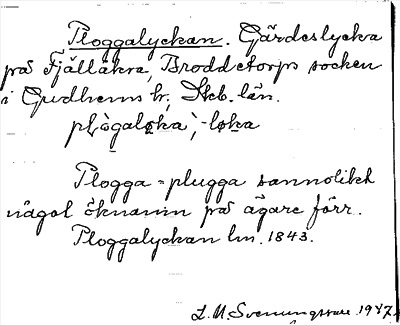 Ploggalyckan. Gärdeslycka
på Fjällåkra, Broddetorps socken
i Gudhems hr, Skb. län.
plògaloka, -loka
Plogga = plugga sannolikt
något öknamn på ägare förr.
Ploggalyckan lm. 1843.
L. M. Svenungsson 1947.